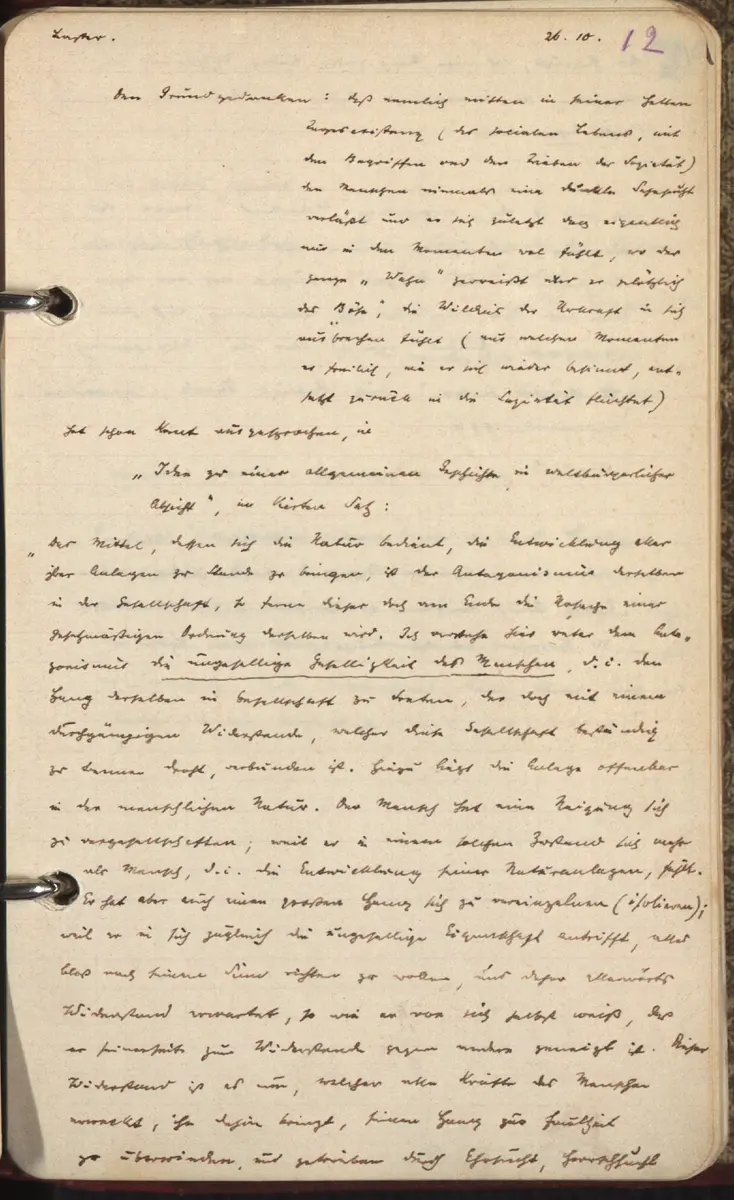 Laster. 26. 10. 12
Den Grundgedanken: daß nemlich mitten in seiner hellen
Tagesexistenz (des socialen Lebens, mit
den Begriffen und den Trieben der Sozietät)
den Menschen niemals eine dunkle Sehnsucht
verläßt und er sich zuletzt doch eigentlich
nur in den Momenten wol fühlt, wo der
ganze „Wahn“ zerreißt und er plötzlich
das „Böse“, die Wildheit der Urkraft in sich
ausbrechen fühlt (aus welchen Momenten
er freilich, wie er sich wieder besinnt, ent-
setzt zurück in die Sozietät flüchtet)
hat schon Kant ausgesprochen, in
„Idee zu einer allgemeinen Geschichte in weltbürgerlicher
Absicht“, im Vierten Satz:
„Das Mittel, dessen sich die Natur bedient, die Entwicklung aller
ihrer Anlagen zu Stande zu bringen, ist der Antagonismus derselben
in der Gesellschaft, so ferne dieser doch am Ende die Ursache einer
gesetzmäßigen Ordnung derselben wird. Ich verstehe hier unter dem Anta-
gonismus die ungesellige Geselligkeit des Menschen, d. i. den
Hang derselben in Gesellschaft zu treten, der doch mit einem
durchgängigen Widerstande, welcher diese Gesellschaft beständig
zu trennen droht, verbunden ist. Hiezu liegt die Anlage offenbar
in der menschlichen Natur. Der Mensch hat eine Neigung sich
zu vergesellschaften; weil er in einem solchen Zustand sich mehr
als Mensch, d. i. die Entwicklung seiner Naturanlagen, fühlt.
Er hat aber auch einen großen Hang sich zu vereinzelnen (isolieren);
weil er in sich zugleich die ungesellige Eigenschaft antrifft, alles
bloß nach seinem Sinne richten zu wollen, und daher allerwärts
Widerstand erwartet, so wie er von sich selbst weiß, daß
er seinerseits zum Widerstande gegen andere geneigt ist. Dieser
Widerstand ist es nun, welcher alle Kräfte des Menschen
erweckt, ihn dahin bringt, seinen Hang zur Faulheit
zu überwinden, und getrieben durch Ehrsucht, Herrschsucht